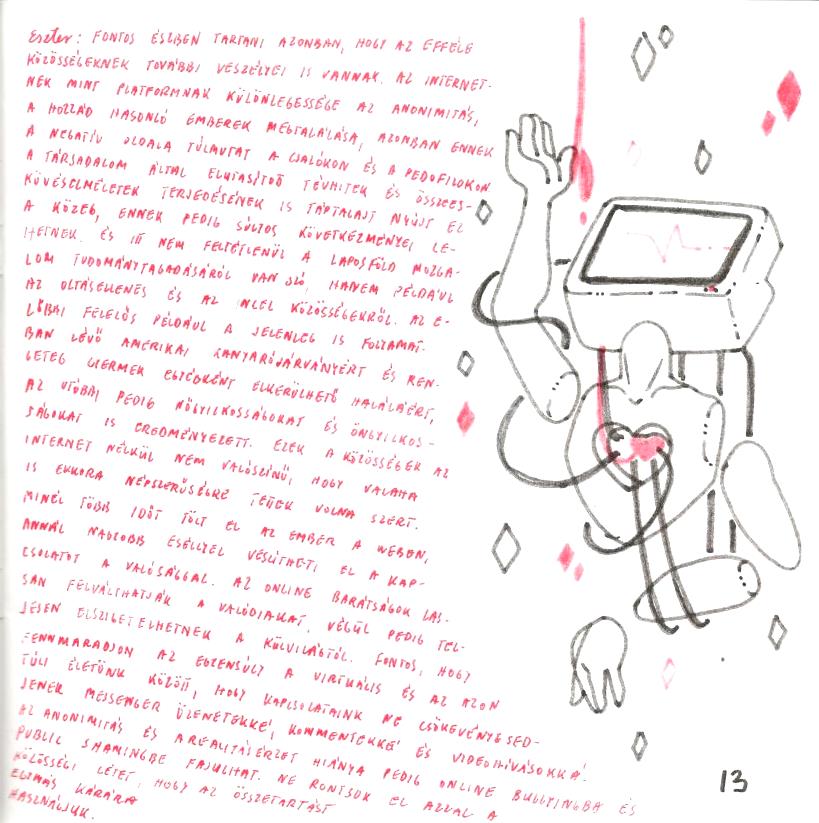 Eszter: FONTOS ÉSZBEN TARTANI AZONBAN, HOGY AZ EFFÉLE
KÖZÖSSÉGEKNEK TOVÁBBI VESZÉLYEI IS VANNAK. AZ INTERNET-
NEK MINT PLATFORMNAK KÜLÖNLEGESSÉGE AZ ANONIMITÁS,
A HOZZÁD HASONLÓ EMBEREK MEGTALÁLÁSA, AZONBAN ENNEK
A NEGATÍV OLDALA TÚLMUTAT A CSALÓKON ÉS A PEDOFILOKON
A TÁRSADALOM ÁLTAL ELUTASÍTOTT TÉVHITEK ÉS ÖSSZEES-
KÜVÉSELMÉLETEK TERJEDÉSÉNEK IS TÁPTALAJT NYÚJT EZ
A KÖZEG, ENNEK PEDIG SÚLYOS KÖVETKEZMÉNYEI LE-
HETNEK. ÉS ITT NEM FELTÉTLENÜL A LAPOSFÖLD MOZGA-
LOM TUDOMÁNYTAGADÁSÁRÓL VAN SZÓ, HANEM PÉLDÁUL
AZ OLTÁSELLENES ÉS AZ INCEL KÖZÖSSÉGEKRŐL. AZ E-
LŐBBI FELELŐS PÉLDÁUL A JELENLEG IS FOLYAMAT-
BAN LÉVŐ AMERIKAI KANYARÓJÁRVÁNYÉRT ÉS REN-
GETEG GYERMEK EGYÉBKÉNT ELKERÜLHETŐ HALÁLÁÉRT,
AZ UTÓBBI PEDIG NŐGYILKOSSÁGOKAT ÉS ÖNGYILKOS-
SÁGOKAT IS EREDMÉNYEZETT. EZEK A KÖZÖSSÉGEK AZ
INTERNET NÉLKÜL NEM VALÓSZÍNŰ, HOGY VALAHA
IS EKKORA NÉPSZERŰSÉGRE TETTEK VOLNA SZERT.
MINÉL TÖBB IDŐT TÖLT EL AZ EMBER A WEBEN,
ANNÁL NAGYOBB ESÉLLYEL VESZÍTHETI EL A KAP-
CSOLATOT A VALÓSÁGGAL. AZ ONLINE BARÁTSÁGOK LAS-
SAN FELVÁLTHATJÁK A VALÓDIAKAT, VÉGÜL PEDIG TEL-
JESEN ELSZIGETELHETNEK A KÜLVILÁGTÓL. FONTOS, HOGY
FENNMARADJON AZ EGYENSÚLY A VIRTUÁLIS ÉS AZ AZON
TÚLI ÉLETÜNK KÖZÖTT, HOGY KAPCSOLATAINK NE CSÖKEVÉNYESED-
JENEK MESSENGER ÜZENETEKKÉ, KOMMENTEKKÉ ÉS VIDEOHÍVÁSOKKÁ.
AZ ANONIMITÁS ÉS A REALITÁSÉRZET HIÁNYA PEDIG ONLINE BULLYINGBA ÉS
PUBLIC SHAMINGBE FAJULHAT. NE RONTSUK EL AZZAL A
KÖZÖSSÉGI LÉTET, HOGY AZ ÖSSZETARTÁST
EGYMÁS KÁRÁRA
HASZNÁLJUK.
13